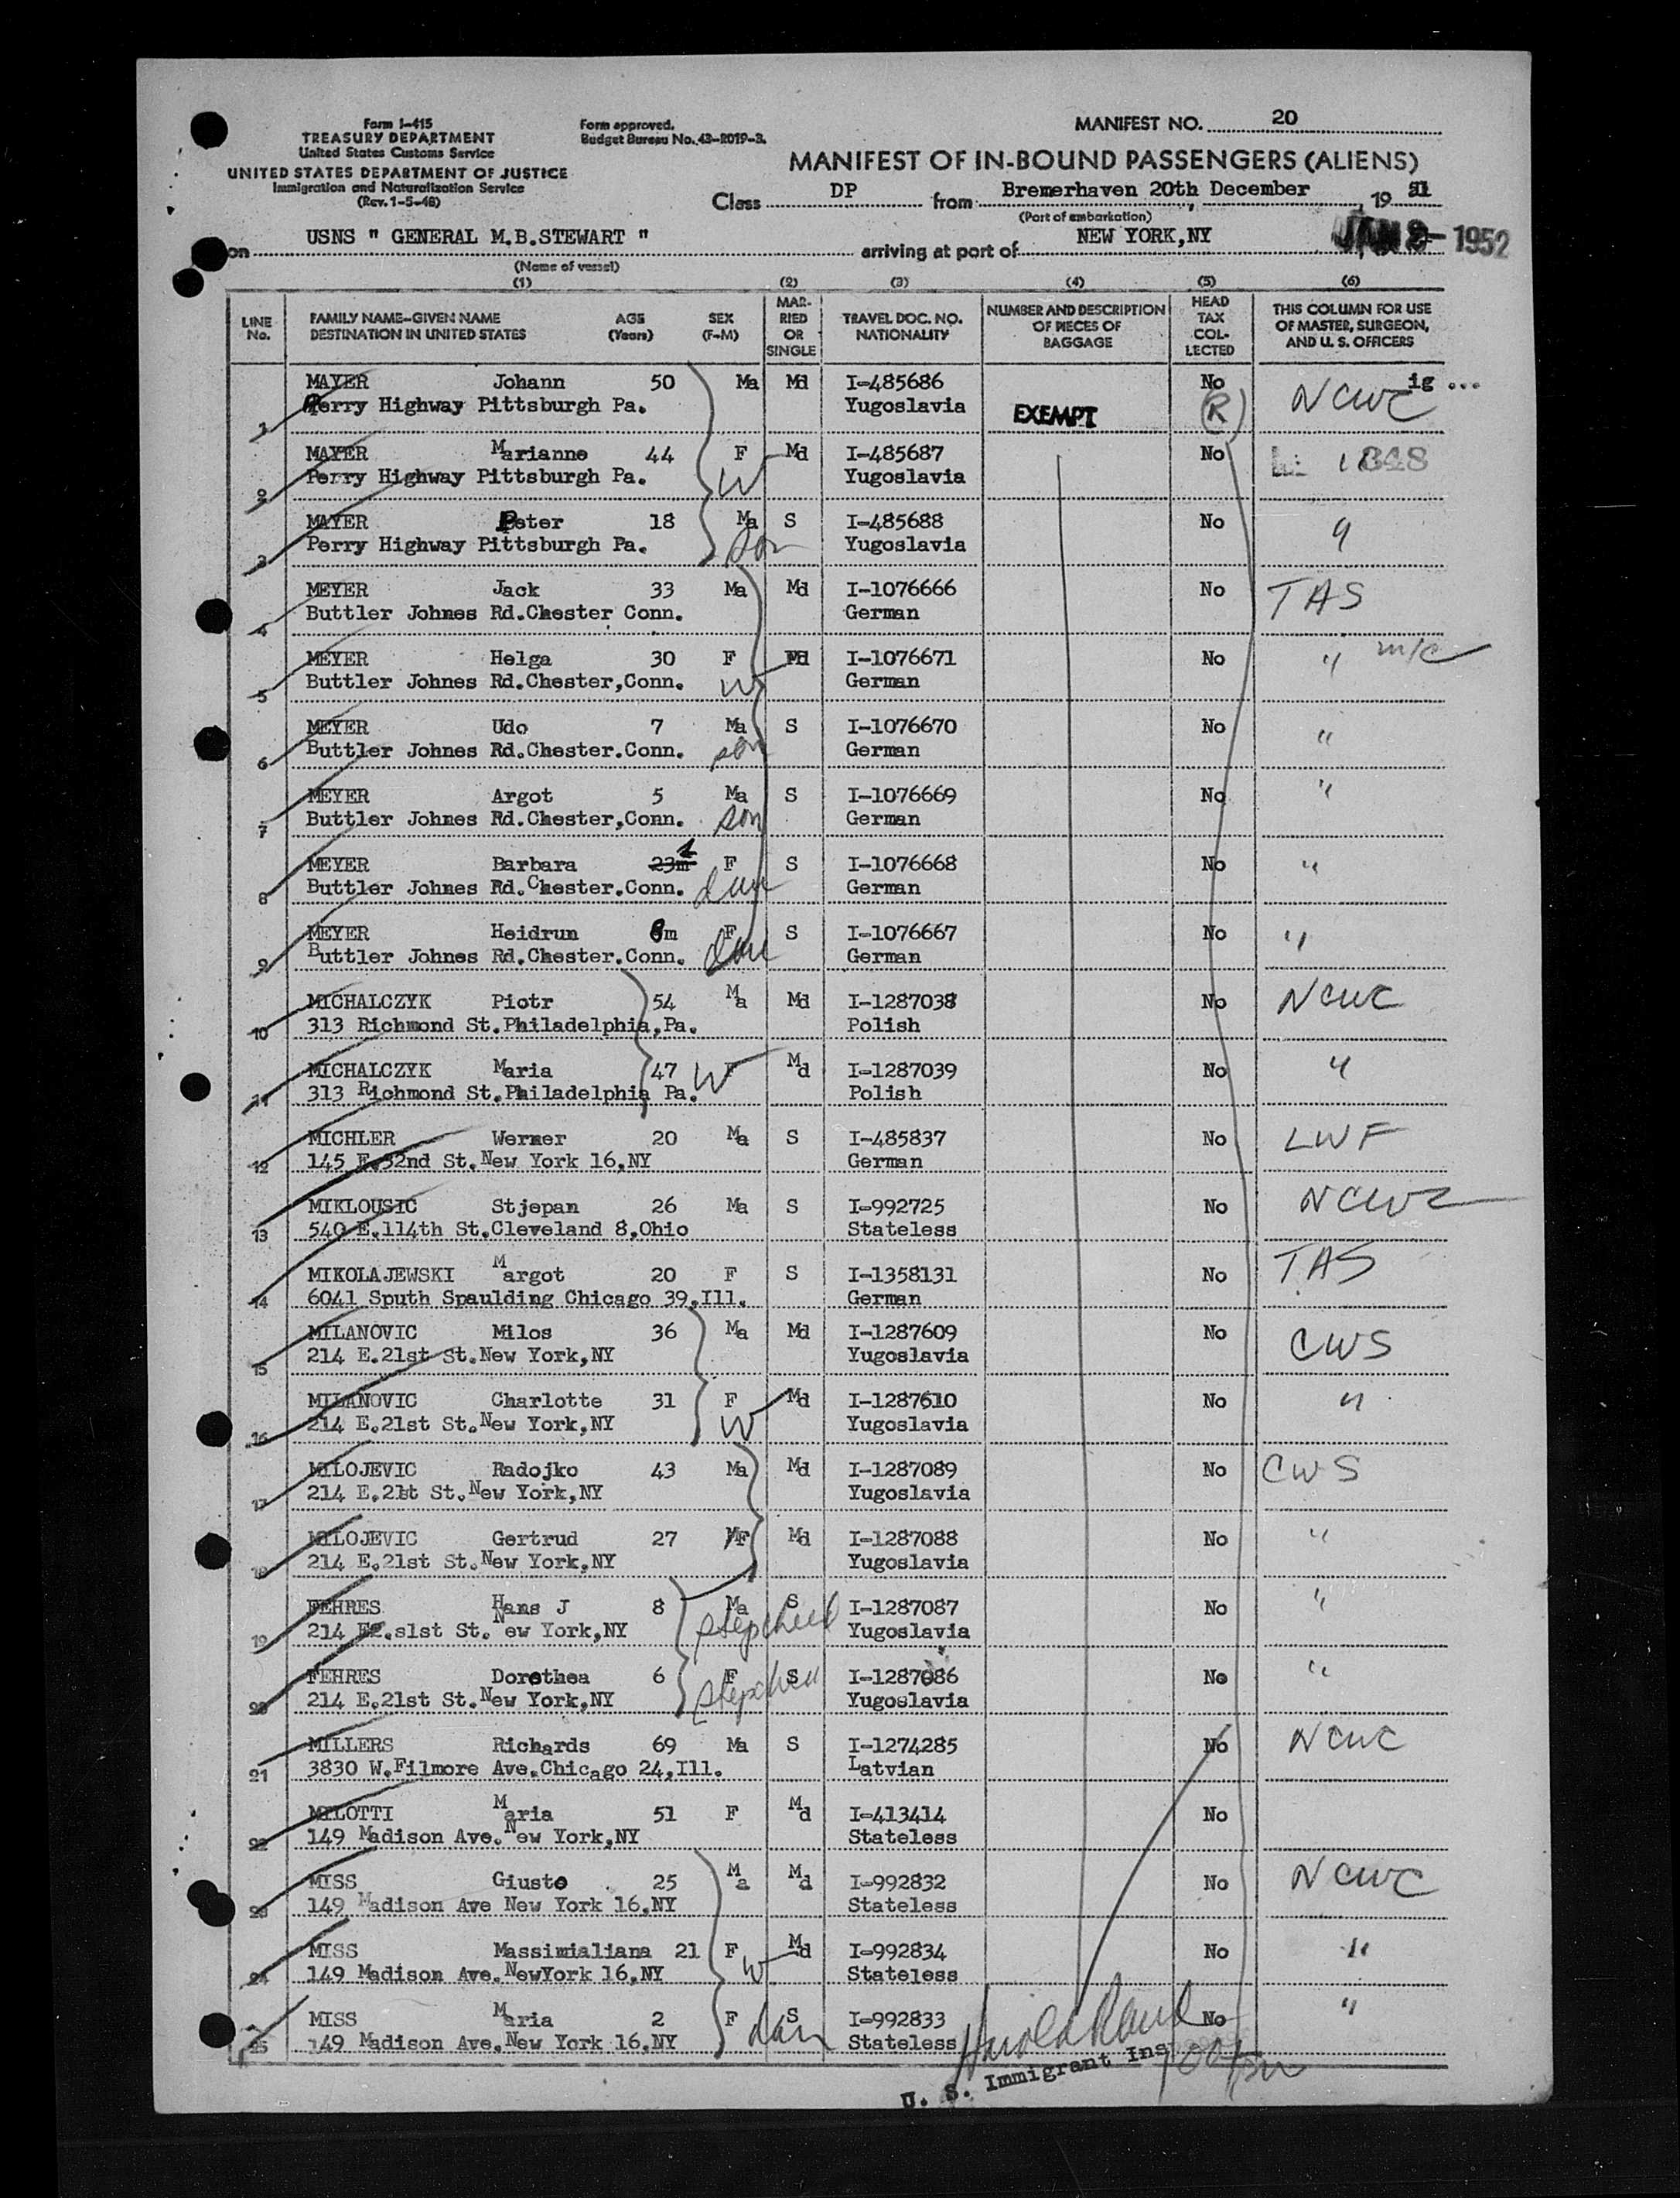 Form I-415
TREASURY DEPARTMENT
United States Customs Service
UNITED STATES DEPARTMENT OF JUSTICE
Immigration and Naturalization Service
(Rev. 1-5-48)
Form approved.
Budget Bureau No. 43-R019-3.
MANIFEST NO. 20
MANIFEST OF IN-BOUND PASSENGERS (ALIENS)
Class DP from Bremerhaven 20th December, 19 51
(Port of embarkation)
on USNS " GENERAL M.B.STEWART " arriving at port of NEW YORK,NY JAN 2- 1952
(Name of vessel)
(1) (2) (3) (4) (5) (6)
LINE No. FAMILY NAME-GIVEN NAME DESTINATION IN UNITED STATES AGE (Years) SEX (F-M) MAR- RIED OR SINGLE TRAVEL DOC. NO. NATIONALITY NUMBER AND DESCRIPTION OF PIECES OF BAGGAGE HEAD TAX COL- LECTED THIS COLUMN FOR USE OF MASTER, SURGEON, AND U. S. OFFICERS
MAYER Johann 50 Ma Md I-485686 No ig ...
1 Perry Highway Pittsburgh Pa. Yugoslavia EXEMPT (R) NCWC
MAYER Marianne 44 F Md I-485687 No 1848
2 Perry Highway Pittsburgh Pa. W Yugoslavia
MAYER Peter 18 Ma S I-485688 No "
3 Perry Highway Pittsburgh Pa. son Yugoslavia
MEYER Jack 33 Ma Md I-1076666 No TAS
4 Buttler Johnes Rd.Chester Conn. German
MEYER Helga 30 F Md I-1076671 No " m/c
5 Buttler Johnes Rd.Chester,Conn. W German
MEYER Udo 7 Ma S I-1076670 No "
6 Buttler Johnes Rd.Chester.Conn. son German
MEYER Argot 5 Ma S I-1076669 No "
7 Buttler Johnes Rd.Chester,Conn. son German
MEYER Barbara 23m 1 F S I-1076668 No "
8 Buttler Johnes Rd.Chester.Conn. dau German
MEYER Heidrun 8m F S I-1076667 No "
9 Buttler Johnes Rd.Chester.Conn. dau German
MICHALCZYK Piotr 54 Ma Md I-1287038 No NCWC
10 313 Richmond St.Philadelphia,Pa. Polish
MICHALCZYK Maria 47 F W Md I-1287039 No "
11 313 Richmond St.Philadelphia Pa. Polish
MICHLER Werner 20 Ma S I-485837 No LWF
12 145 E.32nd St.New York 16,NY German
MIKLOUSIC Stjepan 26 Ma S I-992725 No NCWC
13 540 E.114th St.Cleveland 8,Ohio Stateless
MIKOLAJEWSKI Margot 20 F S I-1358131 No TAS
14 6041 Sputh Spaulding Chicago 39,Ill. German
MILANOVIC Milos 36 Ma Md I-1287609 No CWS
15 214 E.21st St.New York,NY Yugoslavia
MILANOVIC Charlotte 31 F Md I-1287610 No "
16 214 E.21st St.New York,NY W Yugoslavia
MILOJEVIC Radojko 43 Ma Md I-1287089 No CWS
17 214 E.21st St.New York,NY Yugoslavia
MILOJEVIC Gertrud 27 F Md I-1287088 No "
18 214 E.21st St.New York,NY Yugoslavia
FEHRES Hans J 8 Ma S I-1287087 No "
19 214 E2.s1st St.New York,NY stepchild Yugoslavia
FEHRES Dorothea 6 F S I-1287086 No "
20 214 E.21st St.New York,NY stepchild Yugoslavia
MILLERS Richards 69 Ma S I-1274285 No NCWC
21 3830 W.Filmore Ave.Chicago 24,Ill. Latvian
MILOTTI Maria 51 F Md I-413414 No
22 149 Madison Ave.New York,NY Stateless
MISS Giusto 25 Ma Md I-992832 No NCWC
23 149 Madison Ave New York 16,NY Stateless
MISS Massimialiana 21 F Md I-992834 No "
24 149 Madison Ave.NewYork 16,NY W Stateless
MISS Maria 2 F S I-992833 No "
25 149 Madison Ave.New York 16,NY dau Stateless
U. S. Immigrant Ins